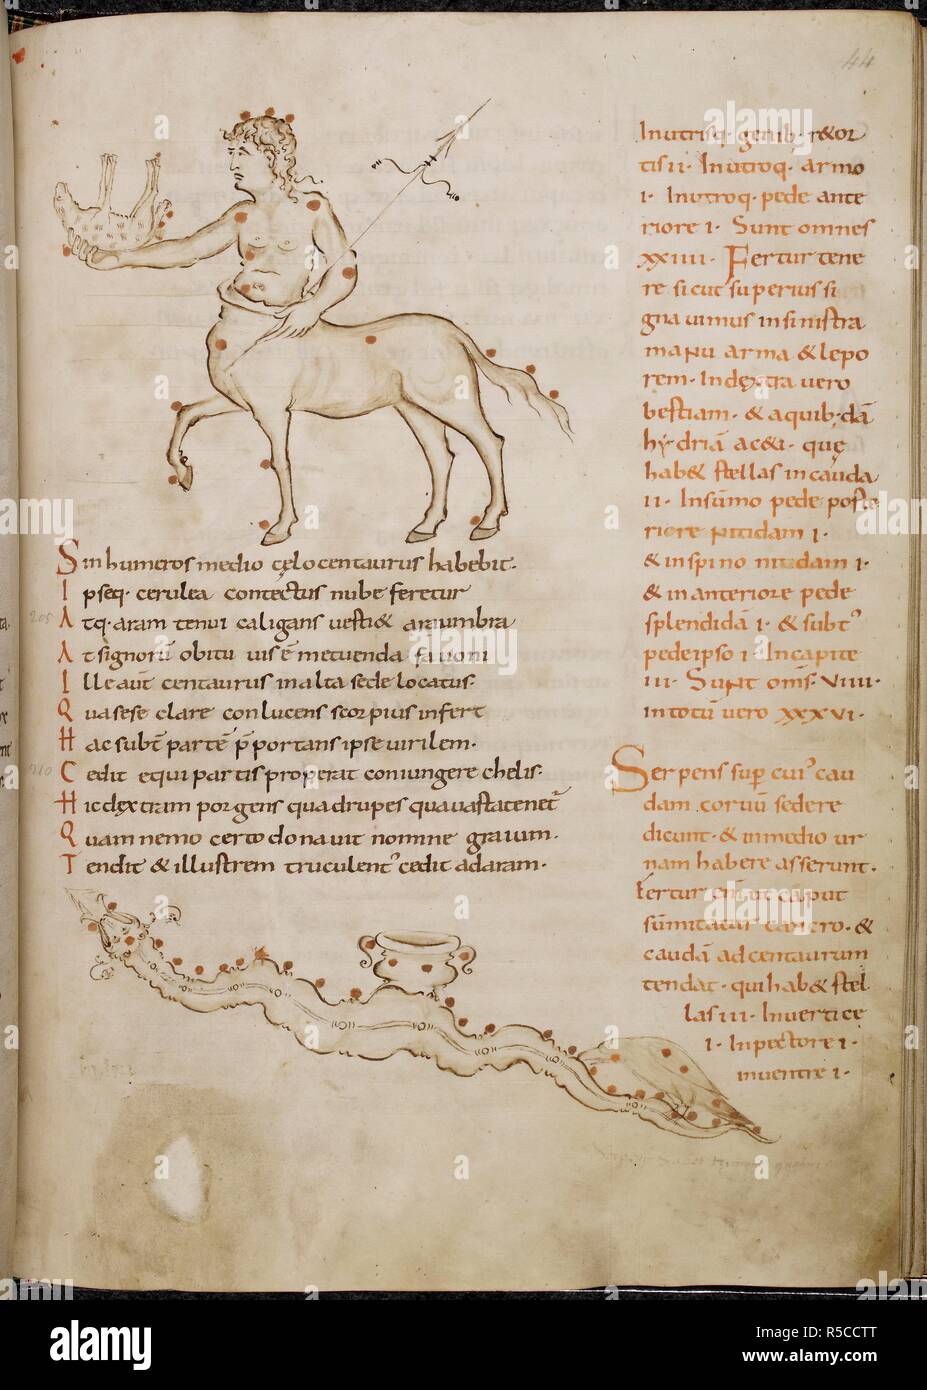 44
Sin humeros medio cęlo centaurus habebit·
Ipseq· cerulea contectus nube feretur
Atq· aram tenui caligans uestiet
At signorū obitu uis ē metuenda fauoni
Ille aūt centaurus in alta sede locatus·
Qua sese clare conlucens scorpius infert
Hac subt partē portans ipse uirilem·
Cedit equi partis properat coniungere chelis·
Hic dextram porgens quadrupes qua uasta tenet
Quam nemo certo donauit nomine graium·
Tendit & illustrem truculent' cedit ad aram·
In utrisq· genib·
tis ii· In utroq· armo
i· In utroq· pede ante
riore i· Sunt omnes
xxiiii· Fertur tene
re sicut superius si
gnauimus in sinistra
manu arma & lepo
rem· In dextra uero
bestiam· & a quib·dā
hydriā quę
hab& stellas in cauda
ii· In sūmo pede poste
riore nitidam i·
& in spino nitidam i·
& in anteriore pede
splendidā i· & subt'
pede ipso i· In capite
iii· Sunt om̄s· viiii·
in totū uero xxxvi·
Serpens sup̄ cui' cau
dam coruū sedere
dicunt· & in medio ur
nam habere asserunt·
Fertur ut caput
& 
caudā ad centaurum
tendat· qui hab& stel
las iii· In uertice
i· In pectore i·
in uentre i·
alamy
Image ID: R5CCTT
www.alamy.com